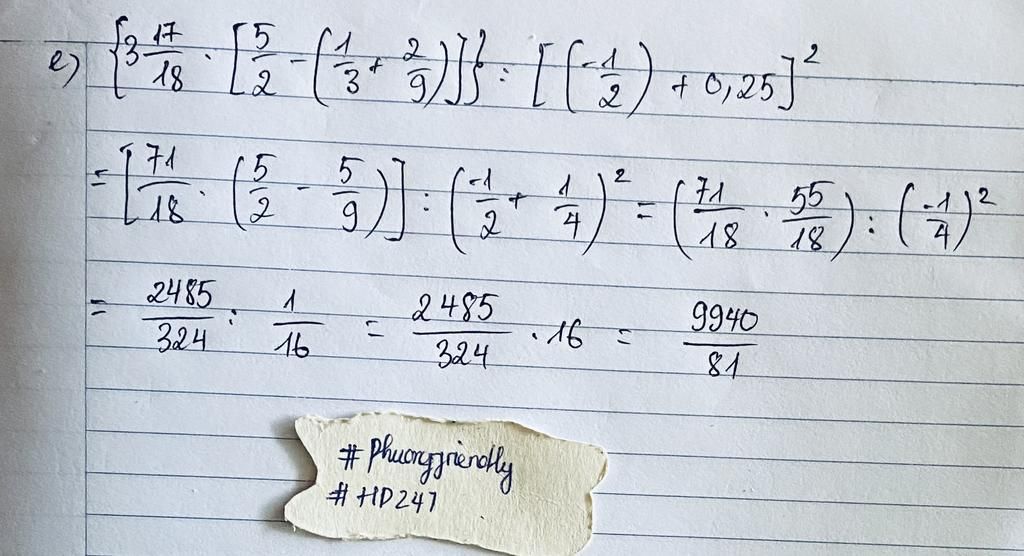 e) {3 17/18 · [5/2 - (1/3 + 2/9)]} : [(-1/2) + 0,25]²
= [71/18 · (5/2 - 5/9)] : (-1/2 + 1/4)² = (71/18 · 55/18) : (-1/4)²
= 2485/324 : 1/16 = 2485/324 · 16 = 9940/81
# Phuongfriendly
# HD247